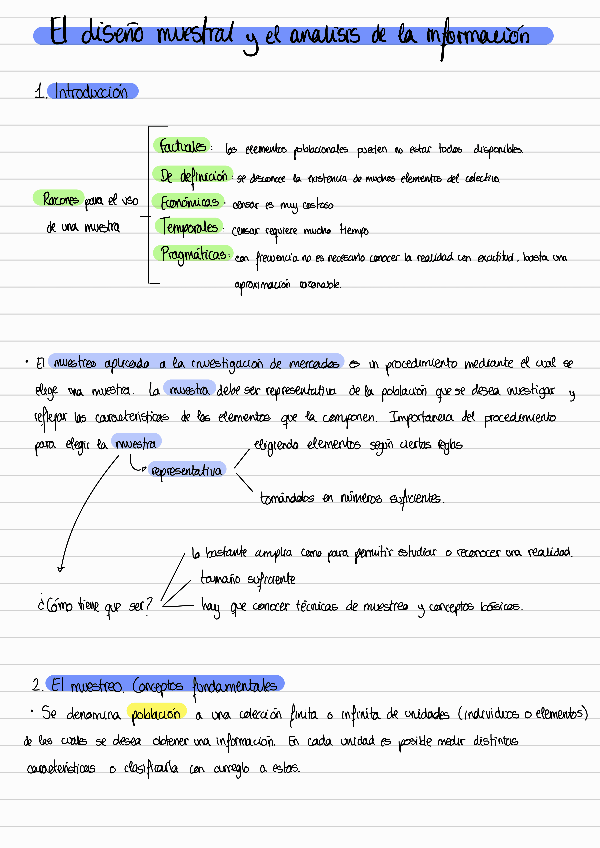 El diseño muestral y el analisis de la información
1. Introducción
Factuales: los elementos poblacionales pueden no estar todos disponibles.
De definición: se desconoce la existencia de muchos elementos del colectivo
Razones para el uso
de una muestra
Económicas: censar es muy costoso
Temporales: censar requiere mucho tiempo
Pragmáticas: con frecuencia no es necesario conocer la realidad con exactitud, basta una
aproximación razonable.
· El muestreo aplicado a la investigación de mercados es un procedimiento mediante el cual se
elige una muestra. La muestra debe ser representativa de la población que se desea investigar y
reflejar las características de los elementos que la componen. Importancia del procedimiento
para elegir la muestra
eligiendo elementos según ciertas reglas
representativa
tomándolos en números suficientes.
lo bastante amplia como para permitir estudiar o reconocer una realidad.
tamaño suficiente
¿Cómo tiene que ser?
hay que conocer técnicas de muestreo y conceptos básicos.
2. El muestreo. Conceptos fundamentales
· Se denomina población a una colección finita o infinita de unidades (individuos o elementos)
de las cuales se desea obtener una información. En cada unidad es posible medir distintas
características o clasificarla con arreglo a estas.